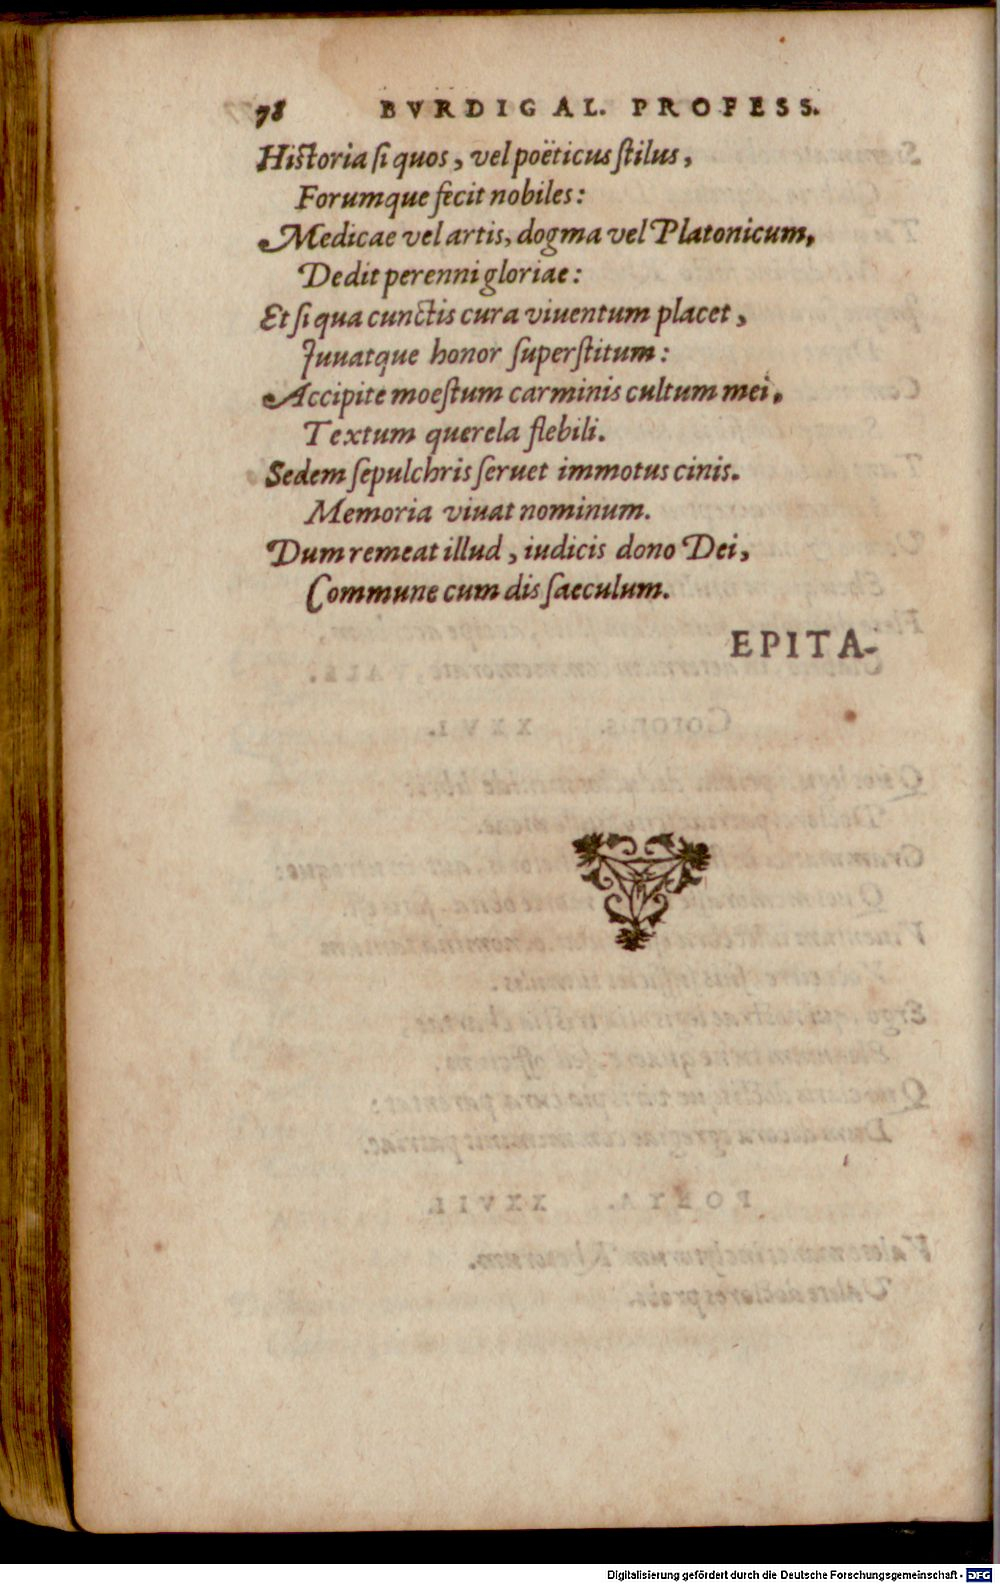 78 BVRDIGAL. PROFESS.
Historia ſi quos, vel poëticus ſtilus,
Forumque fecit nobiles:
Medicae vel artis, dogma vel Platonicum,
Dedit perenni gloriae:
Et ſi qua cunctis cura viuentum placet,
Juuatque honor ſuperſtitum:
Accipite moeſtum carminis cultum mei,
Textum querela flebili.
Sedem ſepulchris ſeruet immotus cinis.
Memoria viuat nominum.
Dum remeat illud, iudicis dono Dei,
Commune cum dis ſaeculum.
EPITA-
Digitalisierung gefördert durch die Deutsche Forschungsgemeinschaft - DFG